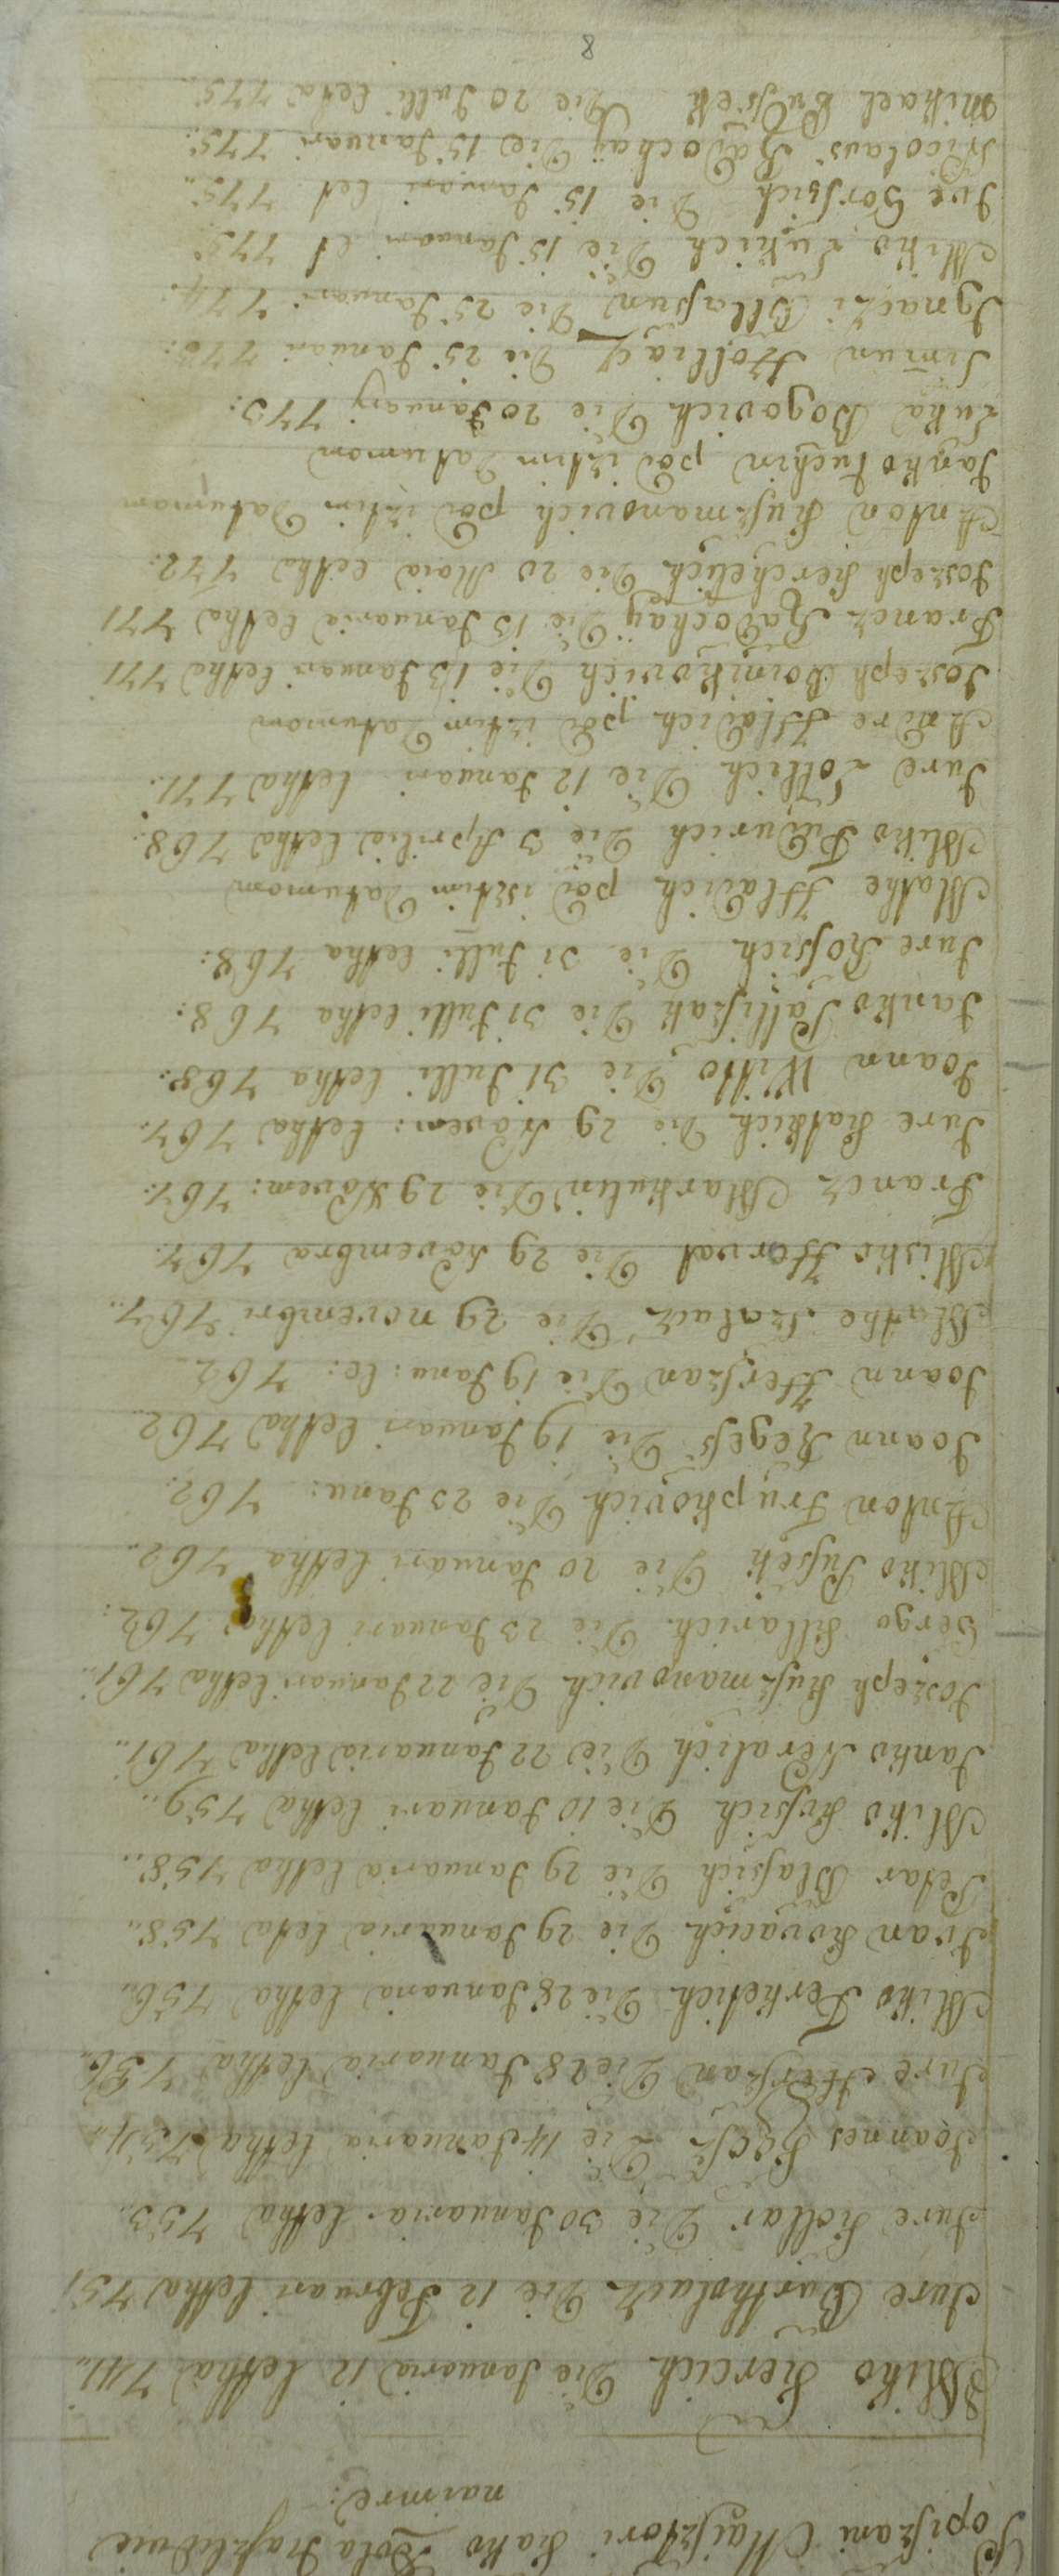 Popiszani Maisztori kako Dola szlidvie
naimre:
Miko Kercich Die Januaria 12 lettha 741..
Jure Bartholacz Die 12 Februari lettha 751
Jure Kollar Die 30 Januaria lettha 753..
Joannes Die 14 Januaria lettha 754..
Jure Herszan Die 28 Januaria lettha 756..
Miko Ferketich Die 28 Januaria lettha 756..
Ivan Kovacich Die 29 Januaria letta 758..
Petar Blasich Die 29 Januaria lettha 758..
Miko Kosich Die 10 Januari lettha 759..
Janko Neralich Die 22 Januaria lettha 761..
Joszeph Kuzmanovich Die 22 Januari lettha 761..
Gergo Die 23 Januari lettha 762:
Miko Die 20 Januari lettha 762..
Anton Trupkovich Die 23 Janu: 762:
Joann Szegess Die 19 Januari lettha 762
Joann Herszan Die 19 Janu: le: 762..
Mathe Die 29 novembri 767..
Misko Horvat Die 29 Novembra 767.
Francz Markulin Die 29 Novem: 767.
Jure Die 29 Novem: lettha 767.
Joann Witto Die 31 Julli lettha 768.
Janko Die 31 Julli lettha 768:
Jure Kossich Die 31 Julli lettha 768:
Mathe Hladich pod isztim Datumom
Miko Die 3 Aprilia lettha 768:
Jure Lollich Die 12 Januari lettha 771.
Andre Hladich pod isztim Datumom
Joszeph Voinikovich Die 13 Januari lettha 771
Francz Radochay Die 13 Januaria lettha 771
Joszeph Die 20 Maia lettha 772:
Anton Kuzmanovich pod isztim Datumom
Janko Tuchin pod isztim Datumom
Luka Bogovich Die 20 January 773:
Simun Die 25 Januari 773:
Ignaczi Die 25 Januari 774:
Miko Lukich Die 15 Januari let 775:
Ive Die 15 Januari let 775..
Nicolaus Radochay Die 15 Januari 775:
Mikael Die 20 Julli letta 775:
8